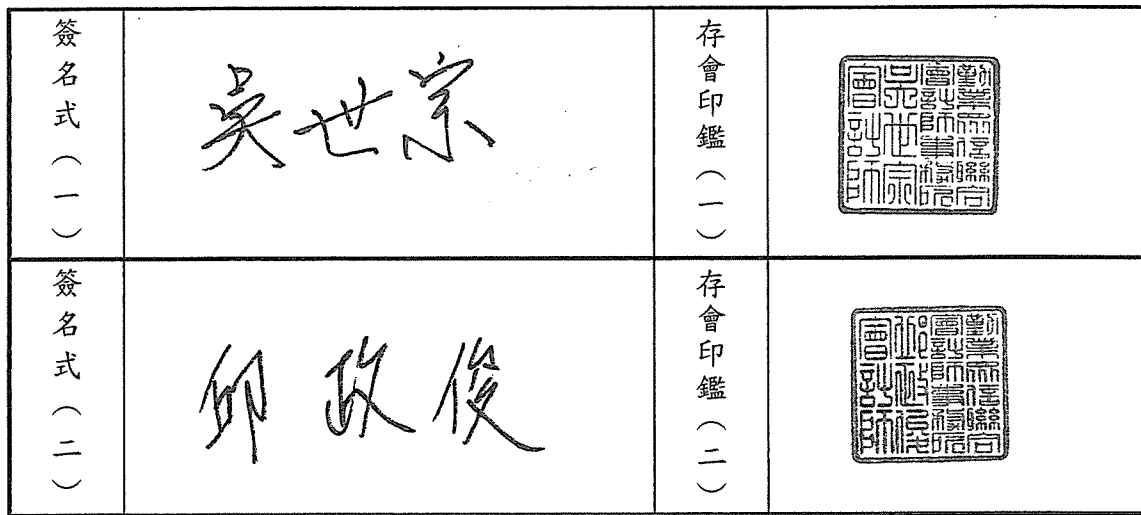 簽名式（一）
吳世宗
存會印鑑（一）
勤業眾信聯合
會計師事務所
吳世宗
會計師
簽名式（二）
邱政俊
存會印鑑（二）
勤業眾信聯合
會計師事務所
邱政俊
會計師